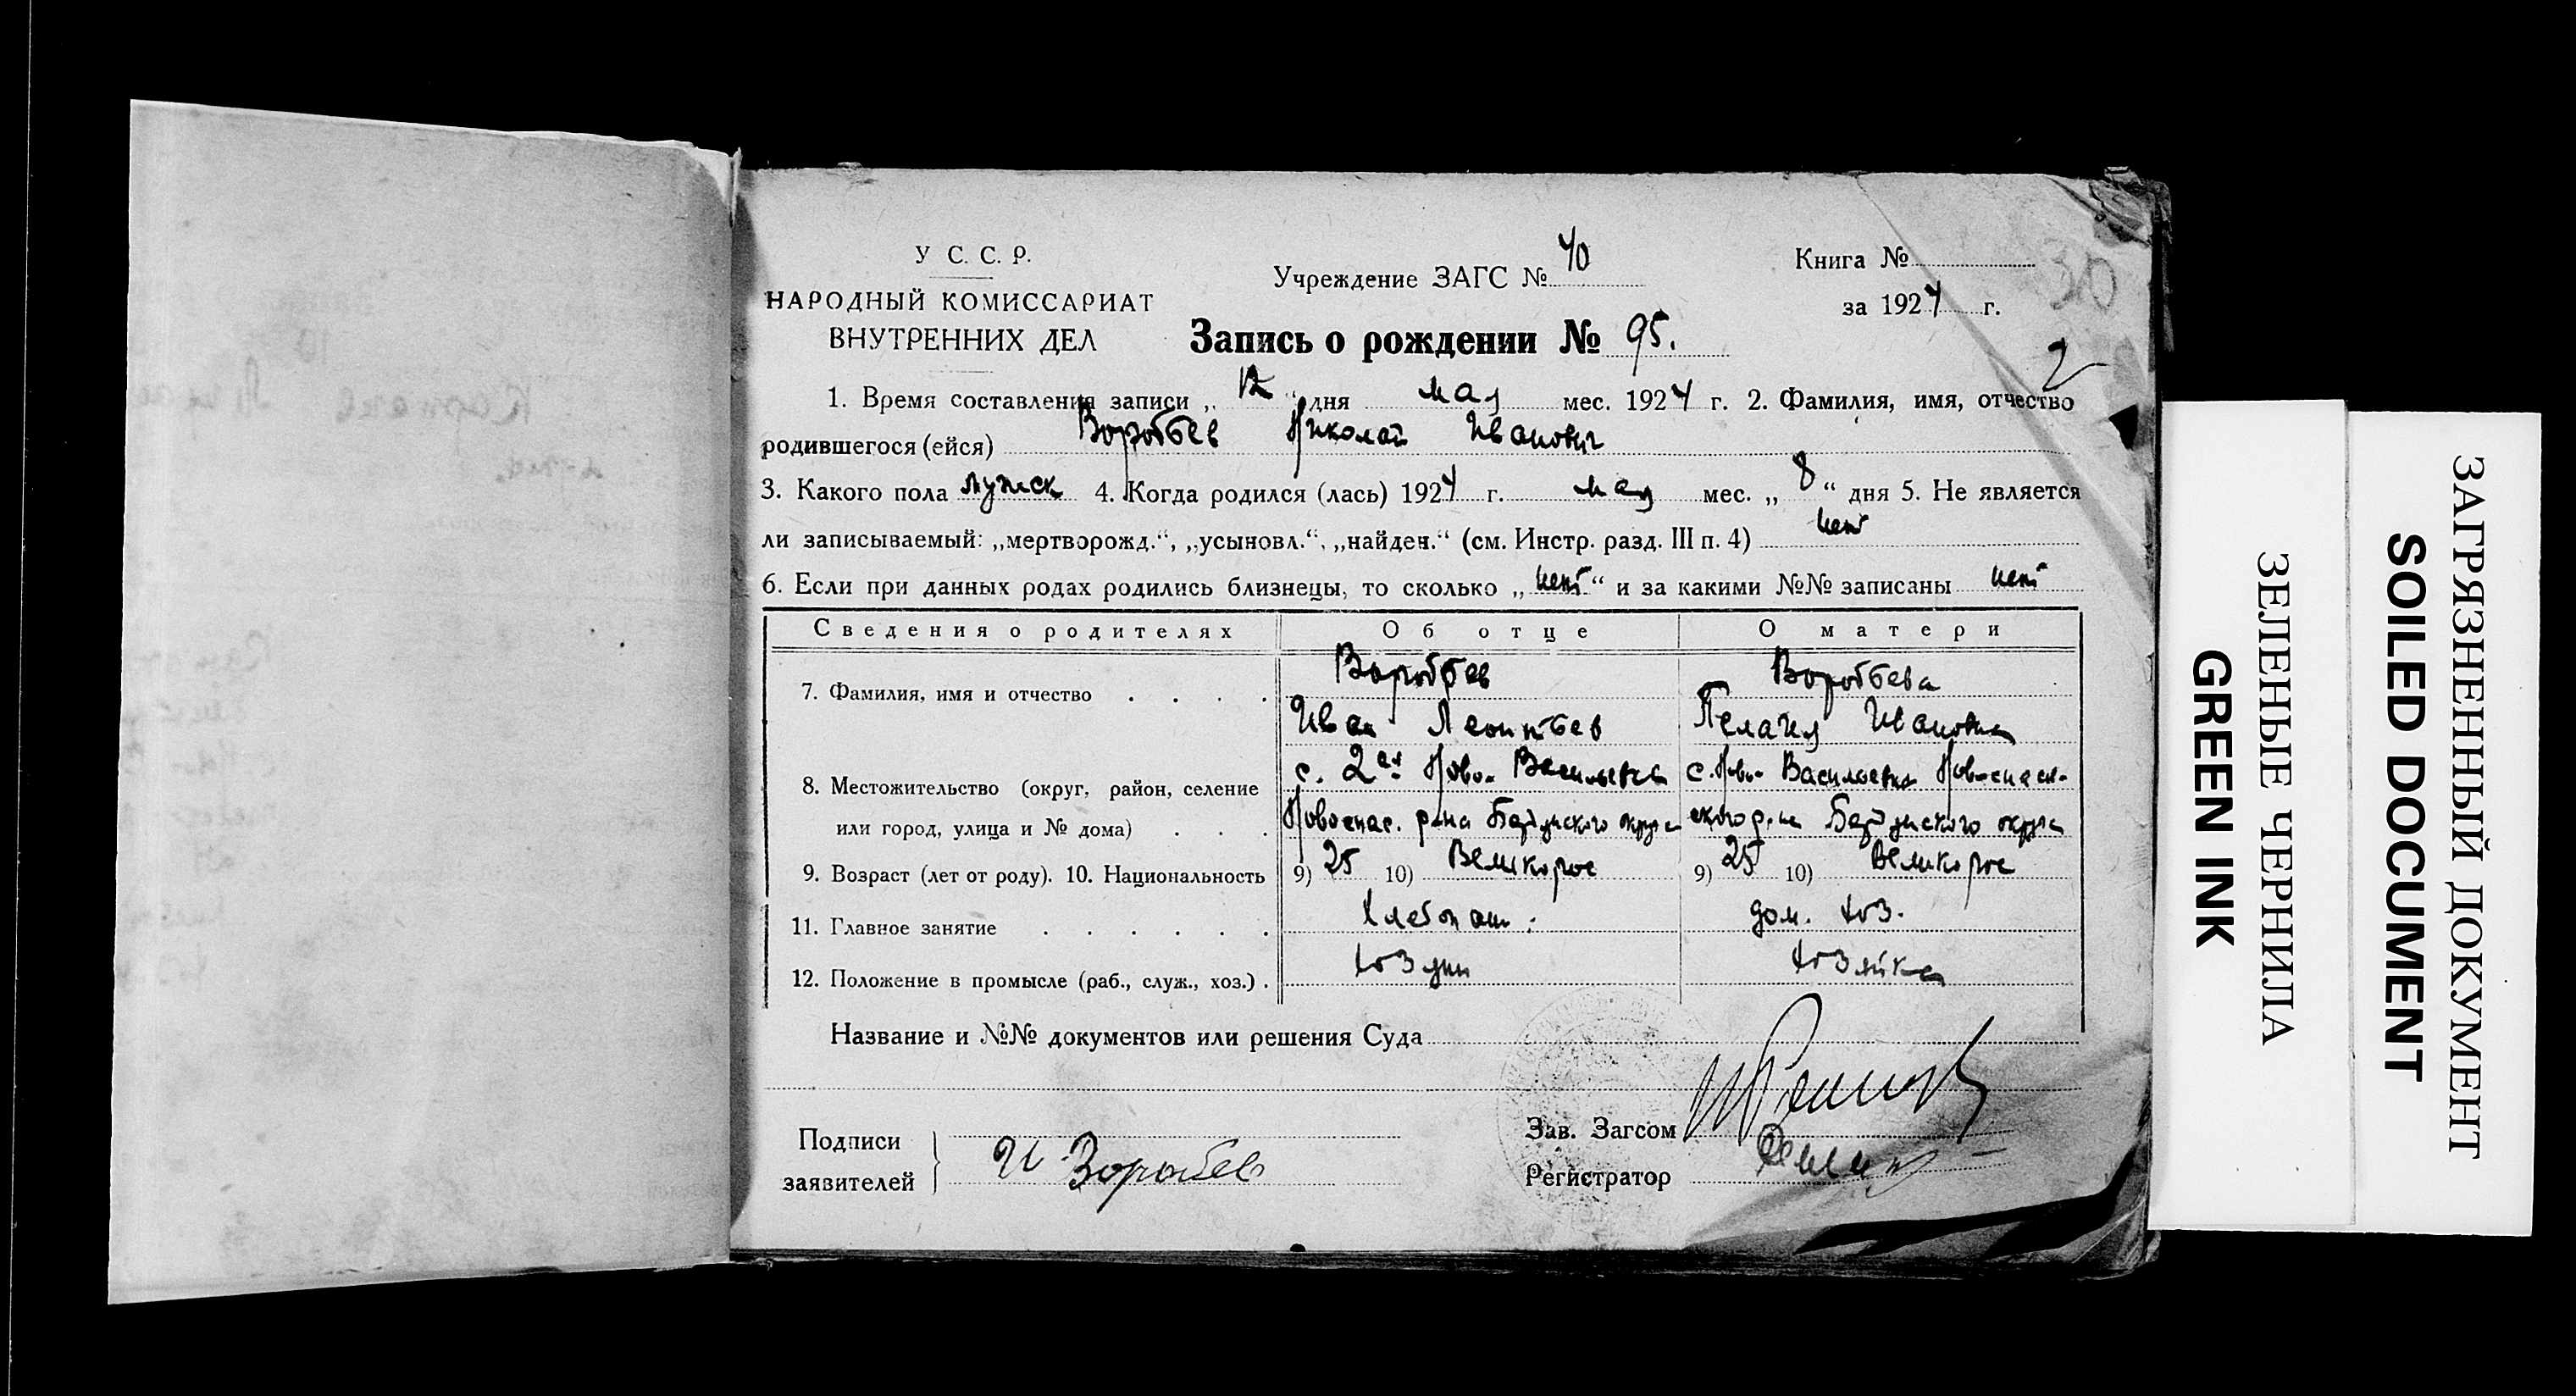 У С. С. Р.
НАРОДНЫЙ КОМИССАРИАТ
ВНУТРЕННИХ ДЕЛ
Учреждение ЗАГС № 40
Книга №
за 1924 г.
30
Запись о рождении № 95.
2
1. Время составления записи „12“ дня мая мес. 1924 г. 2. Фамилия, имя, отчество
родившегося (ейся) Воробьев Николай Иванович
3. Какого пола мужск 4. Когда родился (лась) 1924 г. мая мес. „8“ дня 5. Не является
ли записываемый: „мертворожд.“, „усыновл.“, „найден.“ (см. Инстр. разд. III п. 4) нет
6. Если при данных родах родились близнецы, то сколько „нет“ и за какими №№ записаны нет
Сведения о родителях Об отце О матери
Воробьев Воробьева
7. Фамилия, имя и отчество . . . .
Иван Леонтьев Пелагия Ивановна
с. 2ая Ново-Васильевка с. Ново-Васильевка Новоспас-
8. Местожительство (округ, район, селение
или город, улица и № дома) . . . Новоспас. р-на Бердянского округа ского р-на Бердянского округа
9. Возраст (лет от роду). 10. Национальность 9) 25 10) Великорос 9) 25 10) Великорос
11. Главное занятие . . . . . . Хлебопаш. дом. хоз.
12. Положение в промысле (раб., служ., хоз.) . хозяин хозяйка
Название и №№ документов или решения Суда
Подписи
заявителей И Воробьев
Зав. Загсом
Регистратор
ЗЕЛЕНЫЕ ЧЕРНИЛА
GREEN INK
ЗАГРЯЗНЕННЫЙ ДОКУМЕНТ
SOILED DOCUMENT